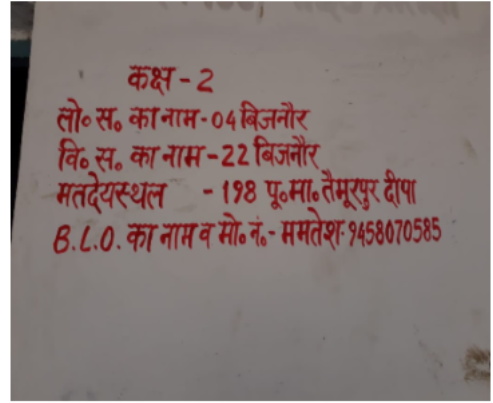 कक्ष - 2
लो० स० का नाम - 04 बिजनौर
वि० स० का नाम - 22 बिजनौर
मतदेयस्थल - 198 पू०मा० तैमूरपुर दीपा
B.L.O. का नाम व मो० नं०- ममतेश-9458070585